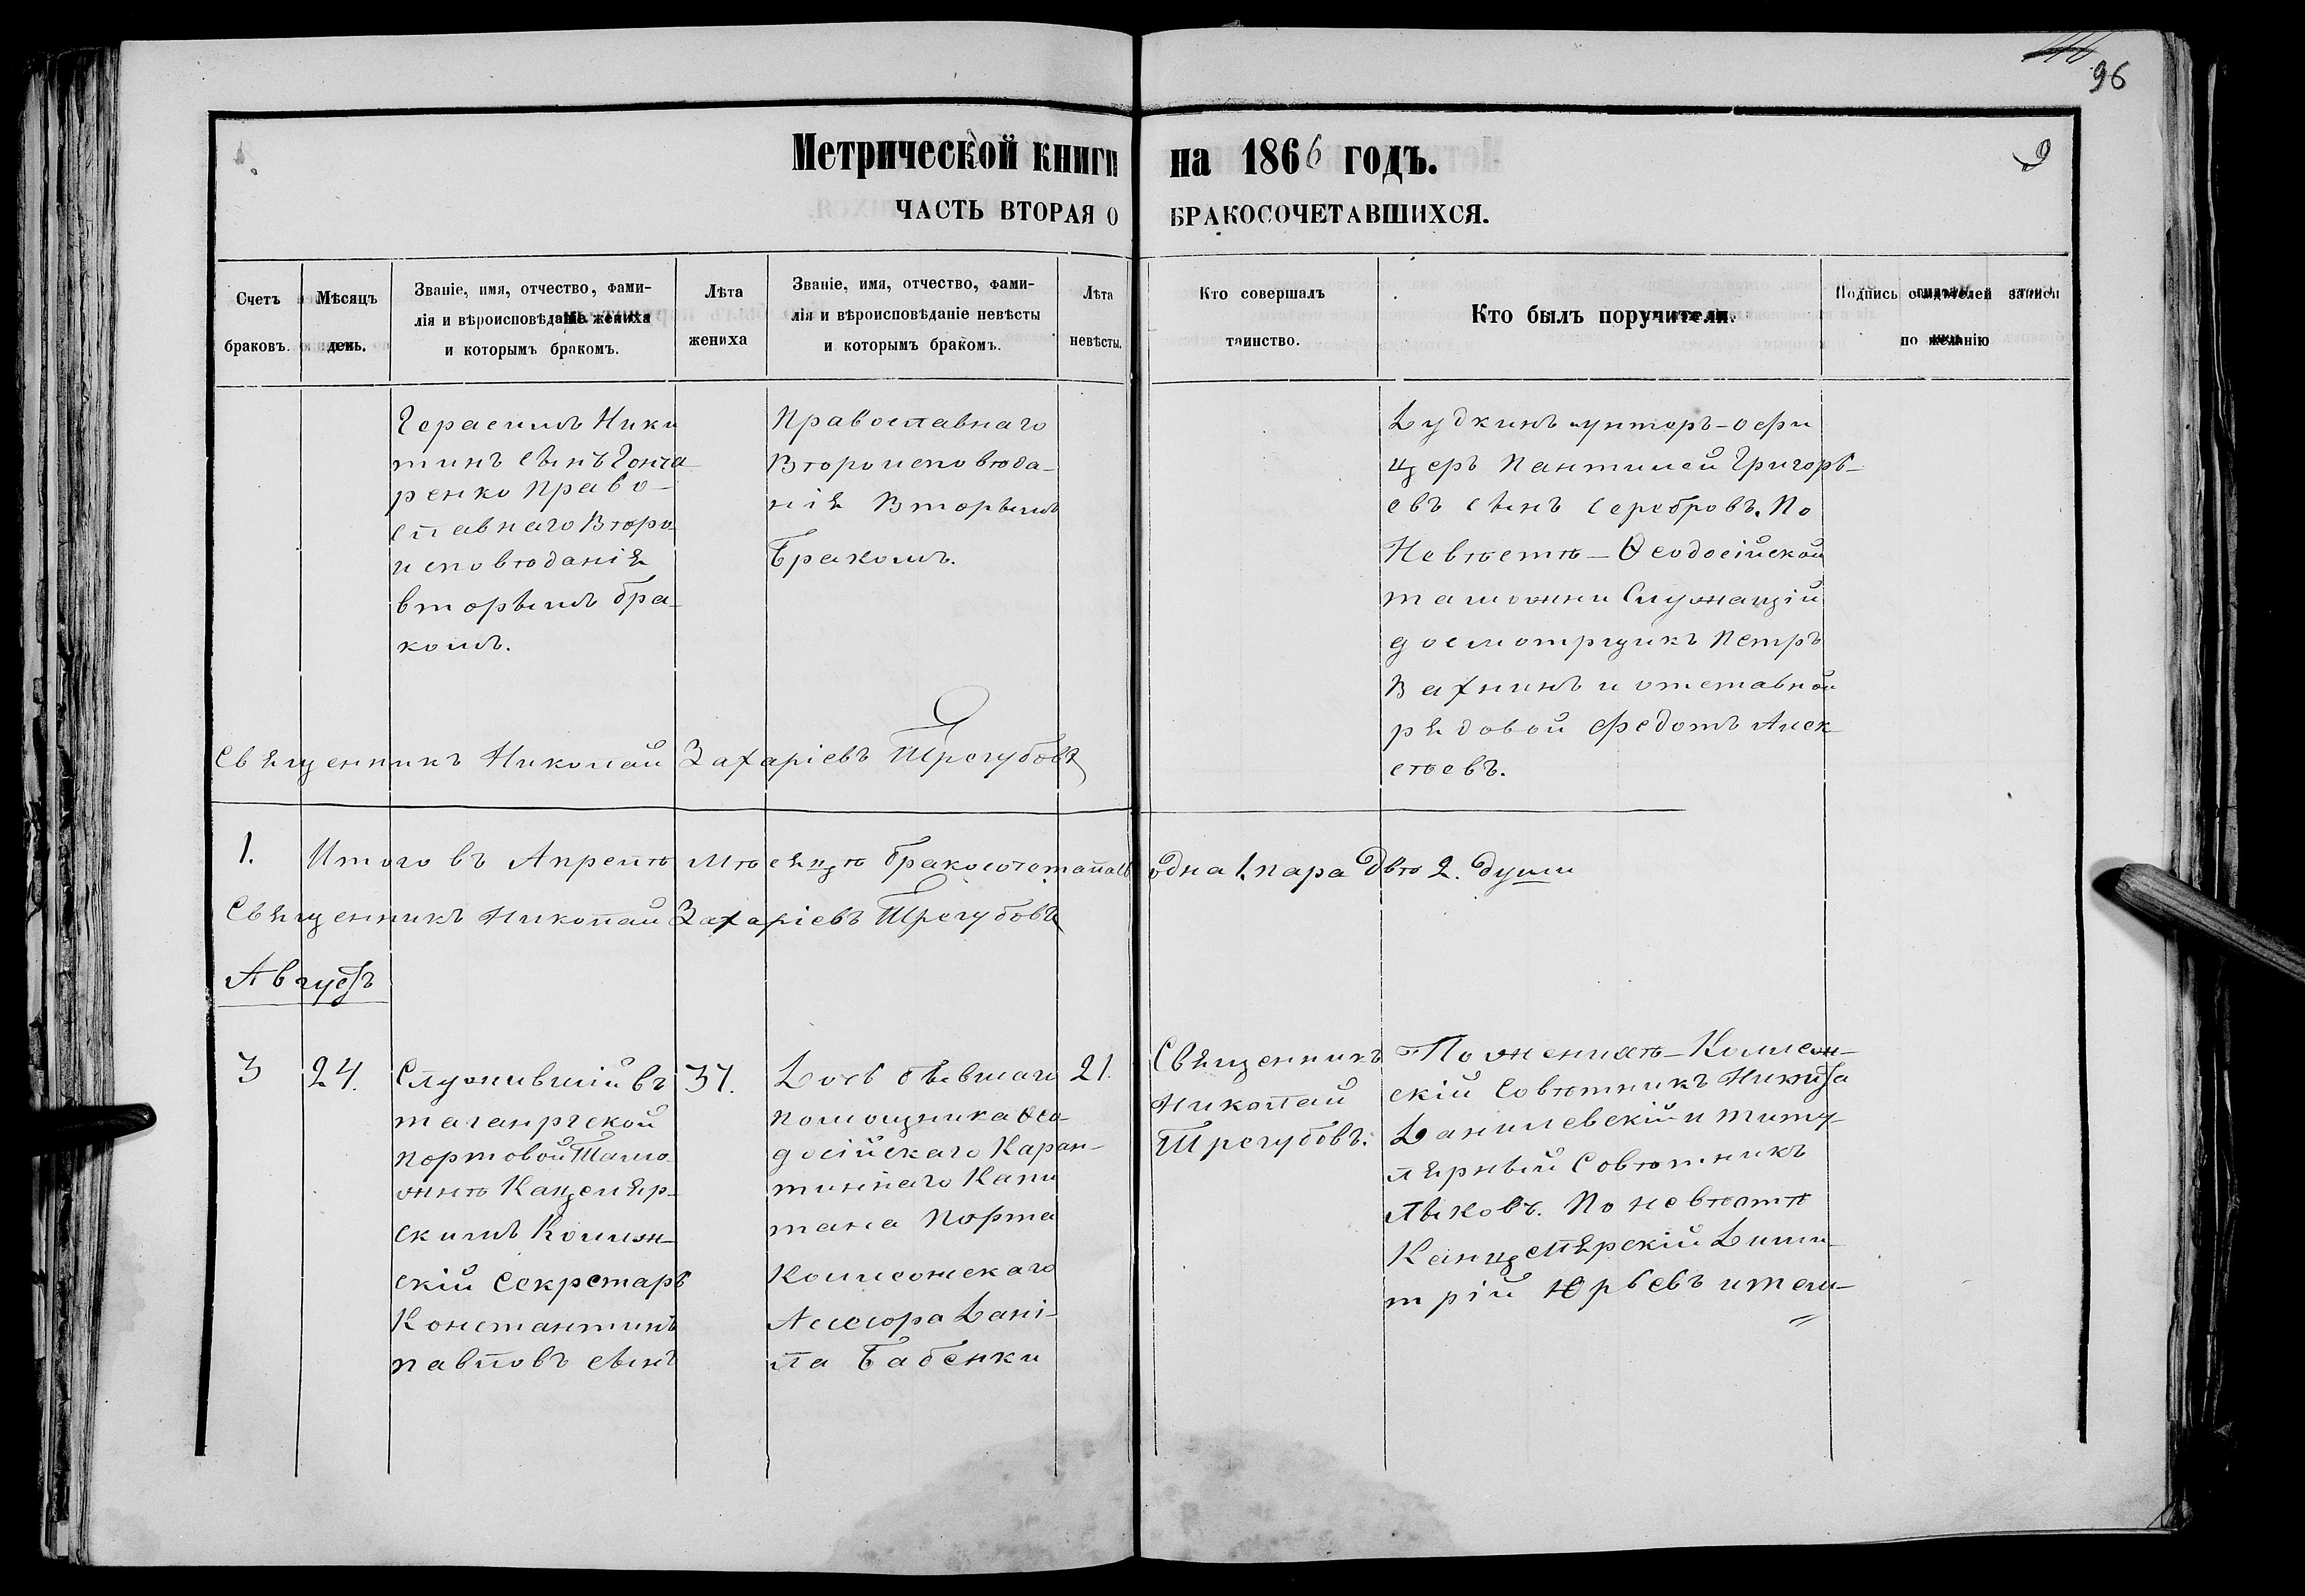 96
Метрической книги на 1866 годъ.
9
ЧАСТЬ ВТОРАЯ О БРАКОСОЧЕТАВШИХСЯ.
Счетъ браковъ.
Мѣсяцъ день.
Званіе, имя, отчество, фами-
лія и вѣроисповѣданіе жениха
и которымъ бракомъ.
Лѣта
жениха
Званіе, имя, отчество, фами-
лія и вѣроисповѣданіе невѣсты
и которымъ бракомъ.
Лѣта
невѣсты.
Кто совершалъ
таинство.
Кто былъ поручители.
Подпись свидѣтелей записи
по желанію
Герасимъ Ники
тинъ сынъ Гонча
ренко Право-
славнаго Вѣро
исповѣданія
вторымъ бра-
комъ.
Православнаго
Вѣроисповѣда-
нія Вторымъ
Бракомъ.
Дудкинъ унторъ-офи
церъ Пантилей Григорь-
евъ сынъ Серебровъ. По
Невѣстѣ - Ѳеодосійской
таможни Служащій
досмотрщикъ Петръ
Вахнинъ и отставной
рядовой Федотъ Алек
сѣевъ.
Священникъ Николай Захаріевъ Трегубовъ
1. Итого въ Апрелѣ Мѣсяцѣ бракосочеталась одна 1. пара Двѣ 2. души
Священникъ Николай Захаріевъ Трегубовъ
Августъ
3
24.
Служившій въ
таганргской
портовой Тамо
жнѣ Канцеляр-
скимъ Коллеж-
скій Секретарь
Константинъ
павловъ сынъ
37.
Дочь бывшаго
помощника Ѳео-
досійскаго Каран-
тиннаго Капи
тана Порта
Коллежскаго
Асесора Дані-
ла Бабенки
21.
Священникъ
Николай
Трегубовъ.
По женихѣ - Коллеж-
скій Совѣтникъ Никита
Данилевскій и титу-
лярный Совѣтникъ
Лыковъ. По невѣстѣ
Канцелярскій Дими-
трій Юрьевъ и тали-